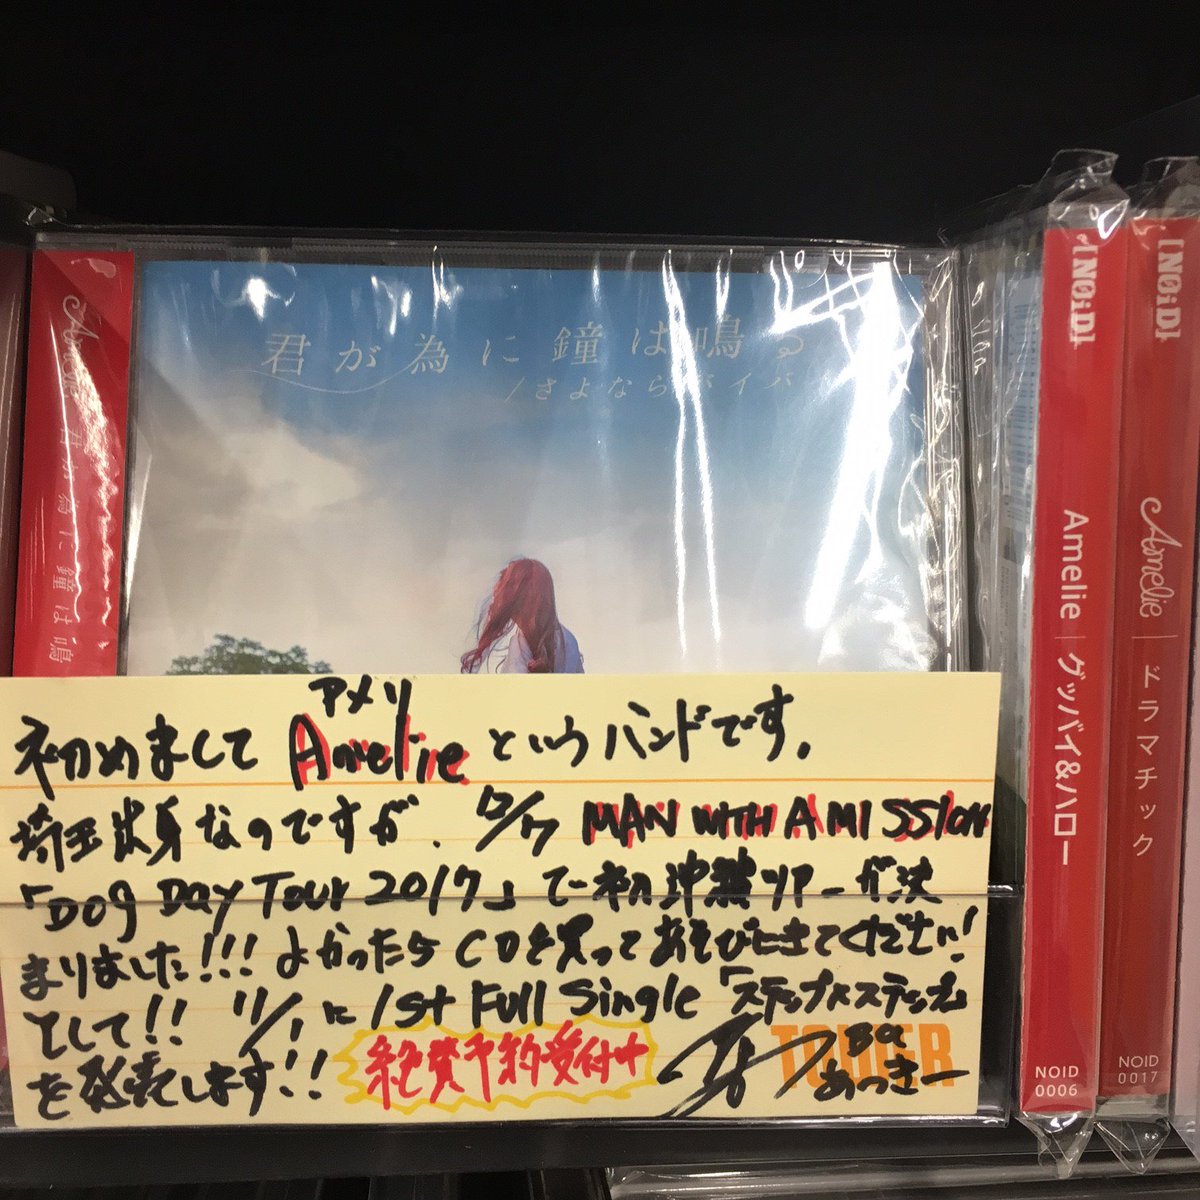 君が為に鐘は鳴る
/さよならバイバイ
Amelie 君が為に鐘は鳴
アメリ
初めまして Amelieというバンドです。
埼玉出身なのですが、12/17 MAN WITH A MISSION
「Dog Day Tour 2017」で初沖縄ツアーが決
まりました!!! よかったらCDを買ってあそびにきてください!
そして!! 11/1に1st Full Single「ステップ×ステップ」
を発売します!!
絶賛予約受付中
TOWER
Ba
あっきー
[NOiD]
Amelie | グッバイ&ハロー
NOID
0006
[NOiD]
Amelie | ドラマチック
NOID
0017